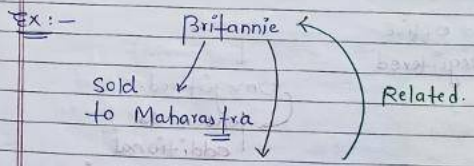 Ex :-
Britannie
Sold
to Maharastra
Related.